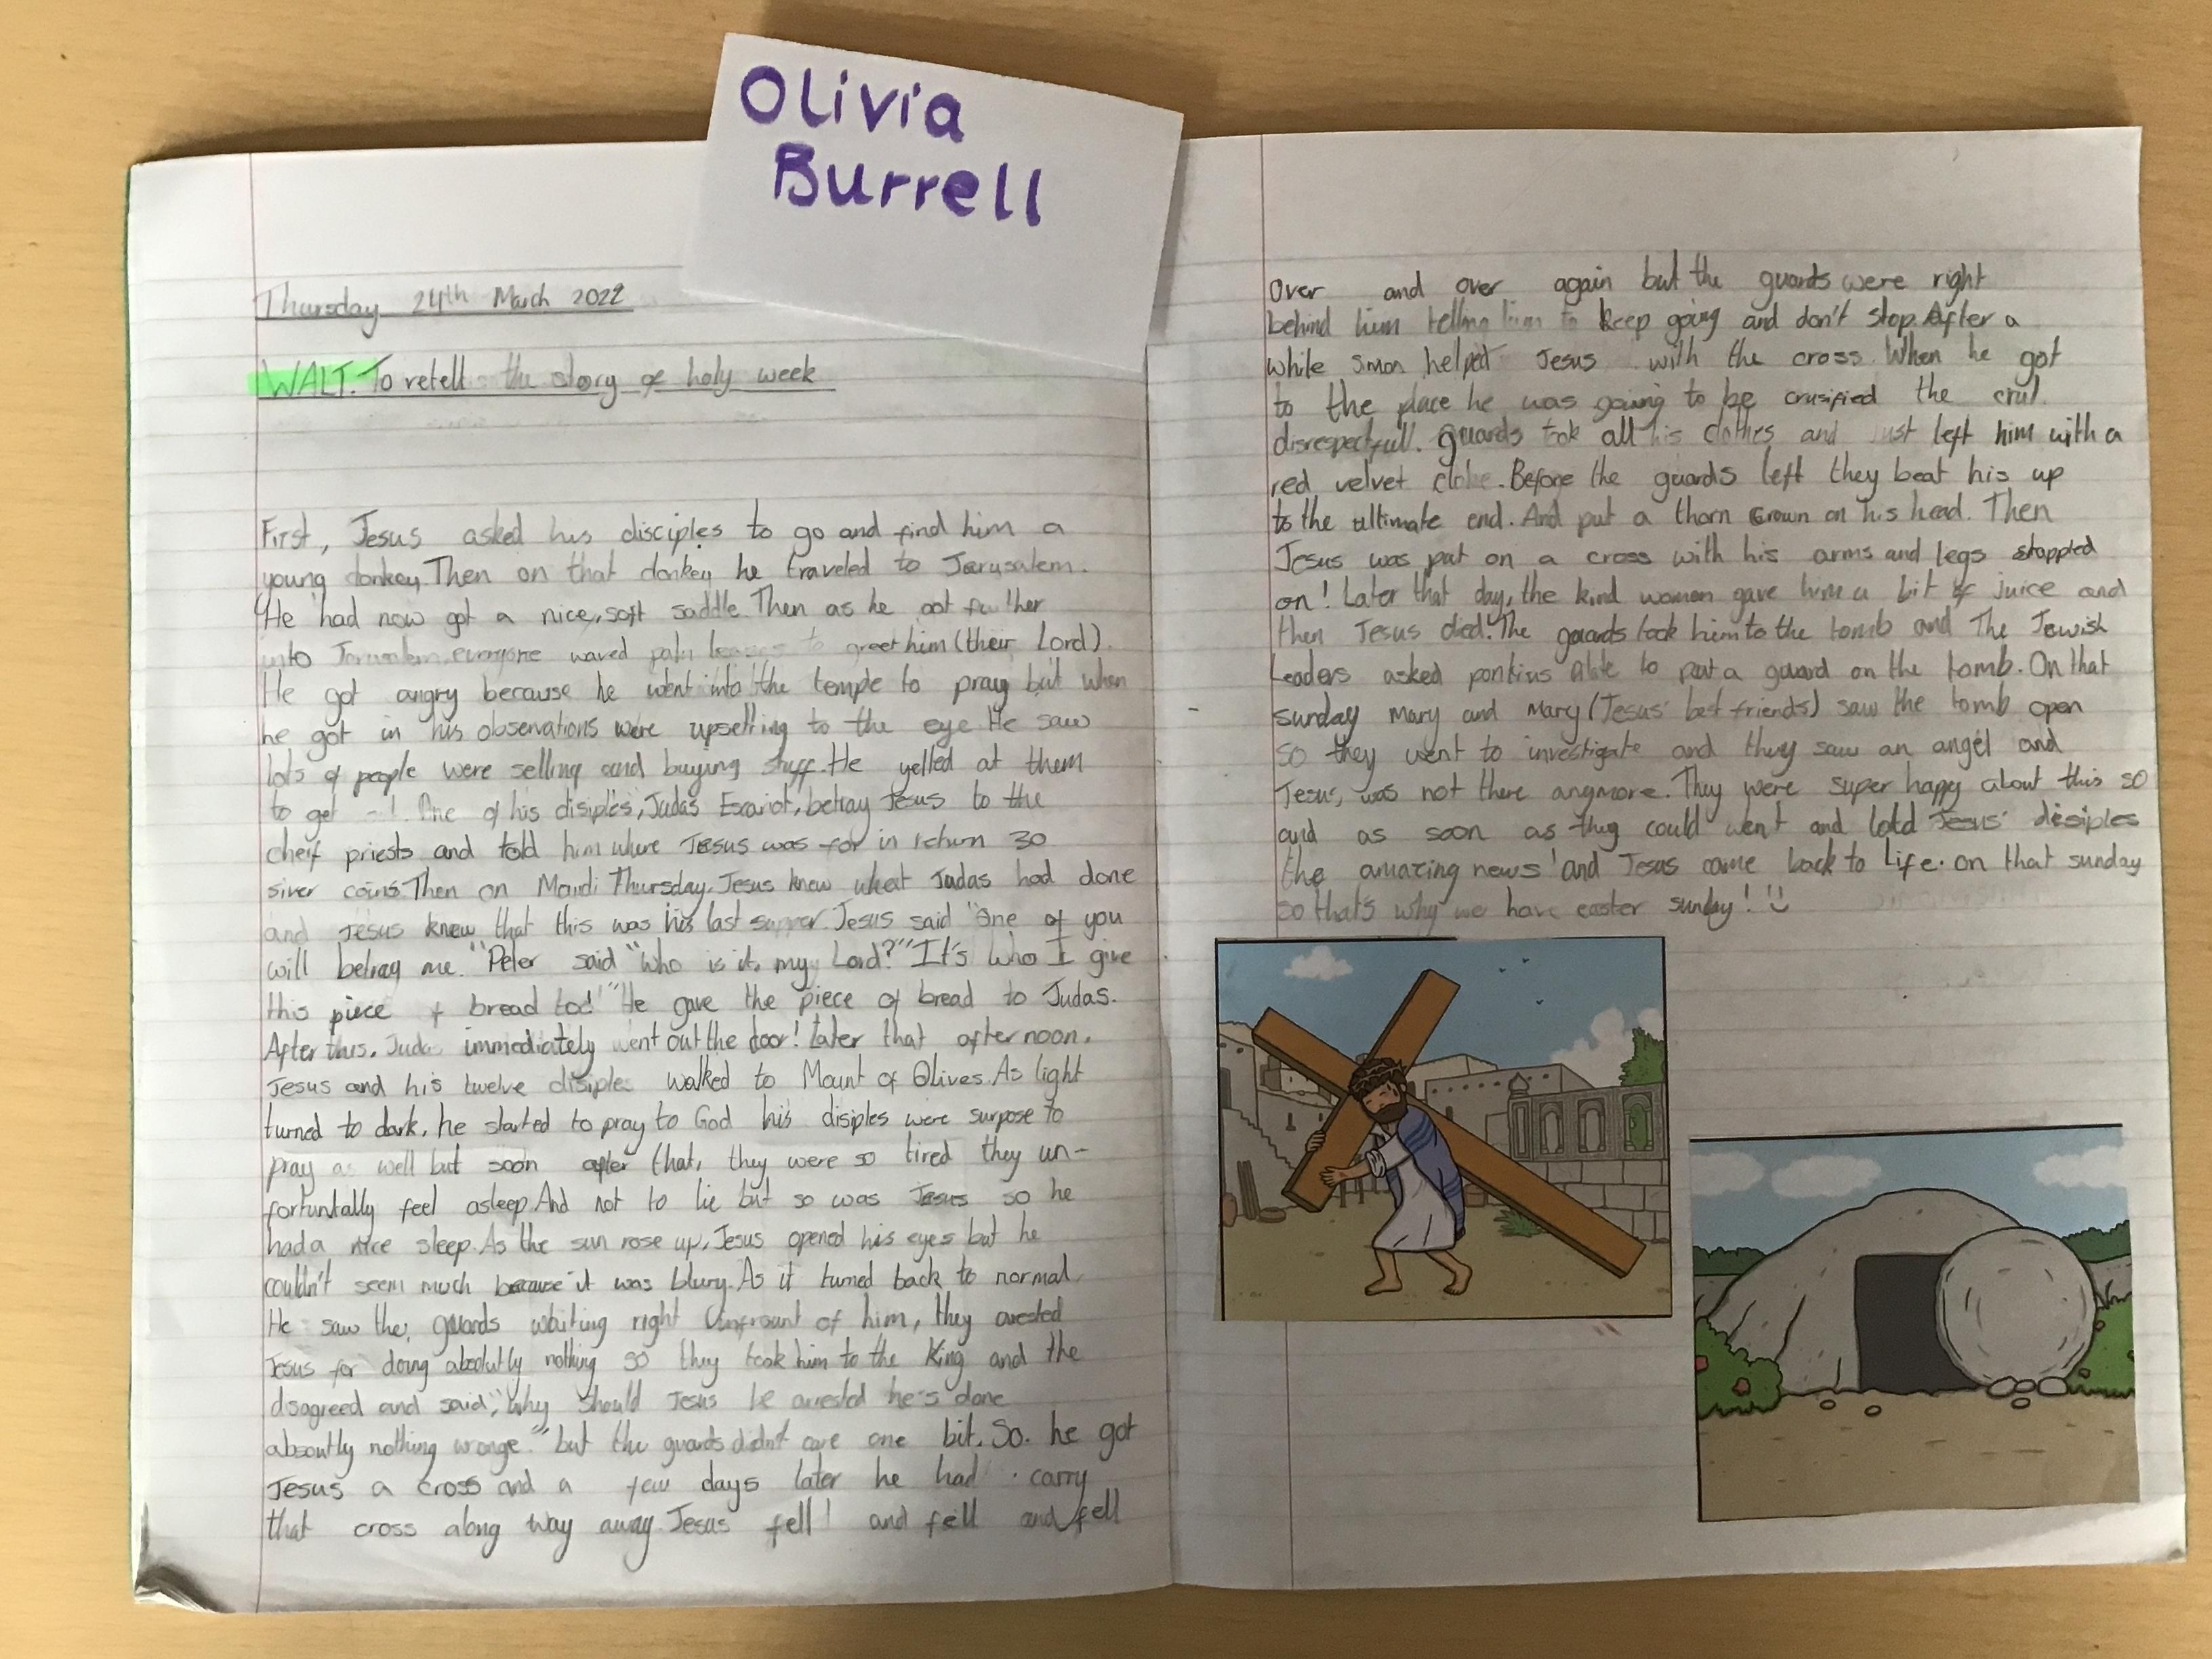 Olivia
Burrell
Thursday 24th March 2022
WALT: To retell the story of holy week
First, Jesus asked his disciples to go and find him a
young donkey. Then on that donkey he traveled to Jerusalem.
He had now got a nice, soft saddle. Then as he got further
into Jerusalem, everyone waved palm leaves to greet him (their Lord).
He got angry because he went into the tempe to pray but when
he got in his observations were upsetting to the eye. He saw
lots of people were selling and buying stuff. He yelled at them
to get One of his disiples, Judas Escariot, betray Jesus to the
cheif priests and told him where Jesus was for in return 30
siver coins. Then on Maudi Thursday, Jesus knew what Judas had done
and Jesus knew that this was his last supper. Jesus said "One of you
will betray me." Peter said "Who is it, my Lord?" "It's who I give
this piece of bread too!" He gave the piece of bread to Judas.
After this, Judas immediately went out the door! Later that afternoon,
Jesus and his twelve disiples walked to Mount of Olives. As light
turned to dark, he started to pray to God his disiples were surpose to
pray as well but soon after that, they were so tired they un-
fortuntally feel asleep. And not to lie but so was Jesus so he
had a nice sleep. As the sun rose up, Jesus opened his eyes but he
couldn't seem much because it was blury. As it turned back to normal
He saw the guards waiting right of him, they arested
Jesus for doing absolutly nothing so they took him to the King and the
disagreed and said, "Why should Jesus be arrested he's done
absoutly nothing wronge." but the guards didn't care one bit. So he got
Jesus a cross and a few days later he had carry
that cross along way away. Jesus fell! and fell and fell
Over and over again but the guards were right
behind him telling him to keep going and don't stop. After a
while Simon helped Jesus with the cross. When he got
to the place he was going to be crusified the crul
disrespectfull guards took all his clothes and Just left him with a
red velvet cloke. Before the guards left they beat his up
to the ultimate end. And put a thorn crown on his head. Then
Jesus was put on a cross with his arms and legs stappled
on! Later that day, the kind woman gave him a bit of juice and
then Jesus died. The guards took him to the tomb and The Jewish
Leaders asked pontius to put a guard on the tomb. On that
sunday Mary and Mary (Jesus' best friends) saw the tomb open
so they went to investigate and they saw an angel and
Jesus, was not there anymore. They were super happy about this so
and as soon as they could went and told Jesus' disiples
the amazing news! and Jesus came back to life. on that sunday
so that's why we have easter sunday!